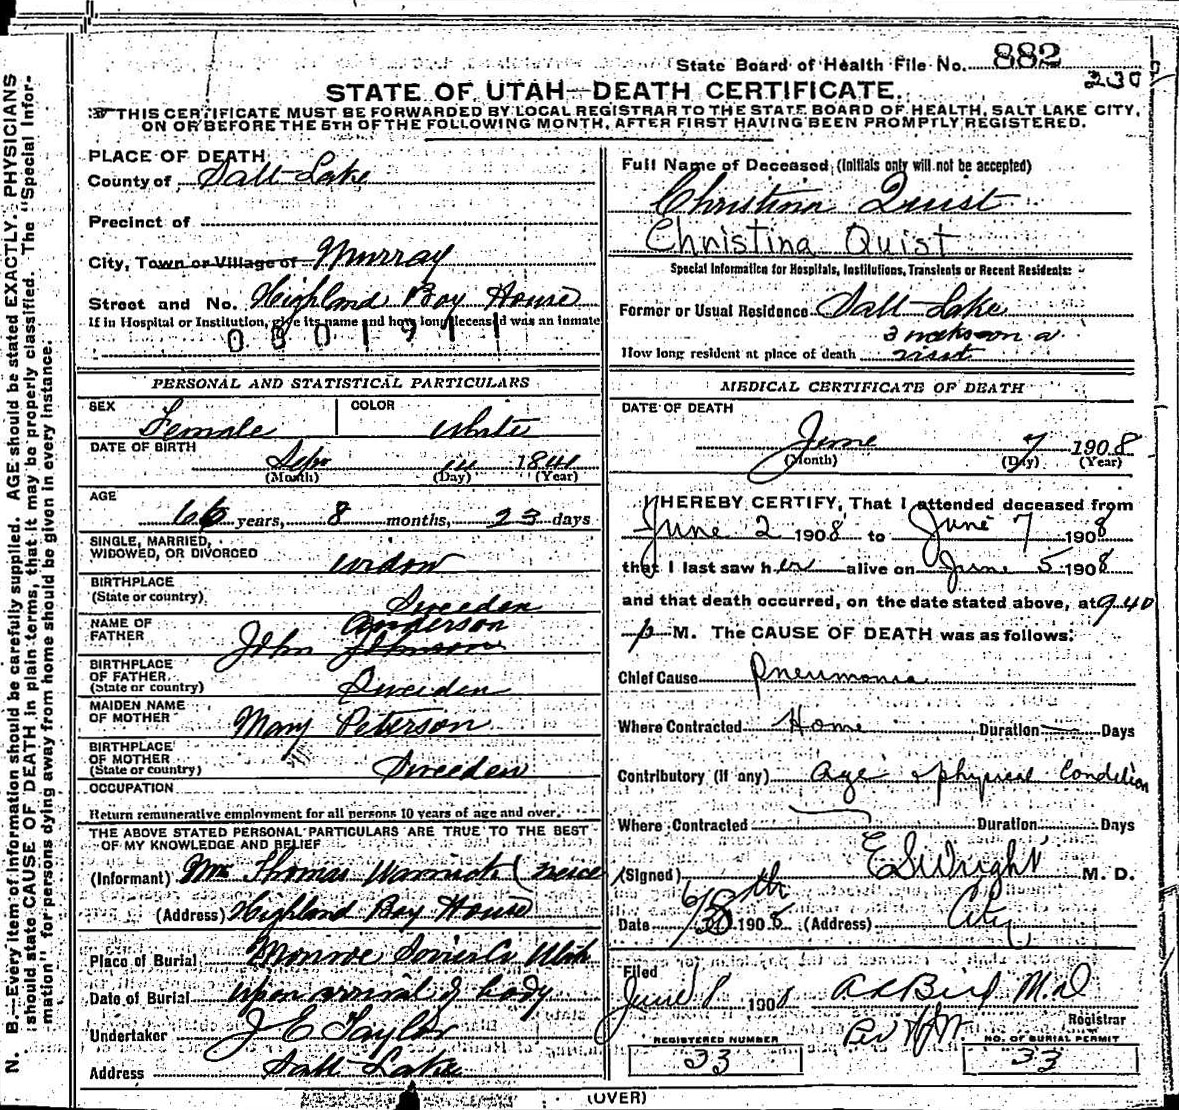 State Board of Health File No. 882
230
STATE OF UTAH—DEATH CERTIFICATE.
THIS CERTIFICATE MUST BE FORWARDED BY LOCAL REGISTRAR TO THE STATE BOARD OF HEALTH, SALT LAKE CITY,
ON OR BEFORE THE 5TH OF THE FOLLOWING MONTH, AFTER FIRST HAVING BEEN PROMPTLY REGISTERED.
PLACE OF DEATH
County of Salt Lake
Precinct of
City, Town or Village of Murray
Street and No. Highland Boy House
If in Hospital or Institution, give its name and how long deceased was an inmate
0301911
PERSONAL AND STATISTICAL PARTICULARS
SEX Female COLOR White
DATE OF BIRTH
Sep 14 1841
(Month) (Day) (Year)
AGE
66 years, 8 months, 23 days
SINGLE, MARRIED,
WIDOWED, OR DIVORCED widow
BIRTHPLACE
(State or country) Sweeden
NAME OF FATHER Anderson
John Johnson
BIRTHPLACE
OF FATHER
(State or country) Sweeden
MAIDEN NAME
OF MOTHER Mary Peterson
BIRTHPLACE
OF MOTHER
(State or country) Sweeden
OCCUPATION
Return remunerative employment for all persons 10 years of age and over.
THE ABOVE STATED PERSONAL PARTICULARS ARE TRUE TO THE BEST
OF MY KNOWLEDGE AND BELIEF
(Informant) Mrs Thomas Warnick (neice
(Address) Highland Boy House
Place of Burial Monroe Sevier Co Utah
Date of Burial upon arrival of body
Undertaker J E Taylor
Address Salt Lake
Full Name of Deceased (Initials only will not be accepted)
Christina Quist
Christina Quist
Special Information for Hospitals, Institutions, Transients or Recent Residents:
Former or Usual Residence Salt Lake
3 weeks on a
How long resident at place of death visit
MEDICAL CERTIFICATE OF DEATH
DATE OF DEATH
June 7 1908
(Month) (Day) (Year)
I HEREBY CERTIFY, That I attended deceased from
June 2 1908 to June 7 1908
that I last saw her alive on June 5 1908
and that death occurred, on the date stated above, at 9.40
p M. The CAUSE OF DEATH was as follows:
Chief Cause Pneumonia
Where Contracted Home Duration Days
Contributory (if any) Age & physical Condition
Where Contracted Duration Days
(Signed) E S Wright M. D.
Date 1908 (Address) City
Filed
June 8 1908 M.D
Registrar
Per
REGISTERED NUMBER
33
NO. OF BURIAL PERMIT
33
(OVER)
N. B.—Every item of information should be carefully supplied. AGE should be stated EXACTLY. PHYSICIANS
should state CAUSE OF DEATH in plain terms, that it may be properly classified. The "Special Infor-
mation" for persons dying away from home should be given in every instance.